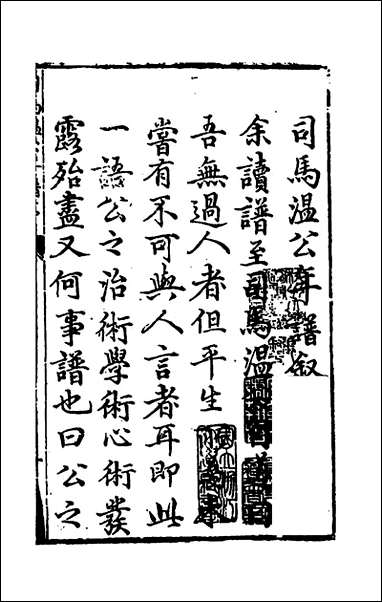 司馬温公年譜叙
余讀譜至司馬温
吾無過人者但平生
嘗有不可與人言者耳即此
一語公之治術學術心術發
露殆盡又何事譜也曰公之